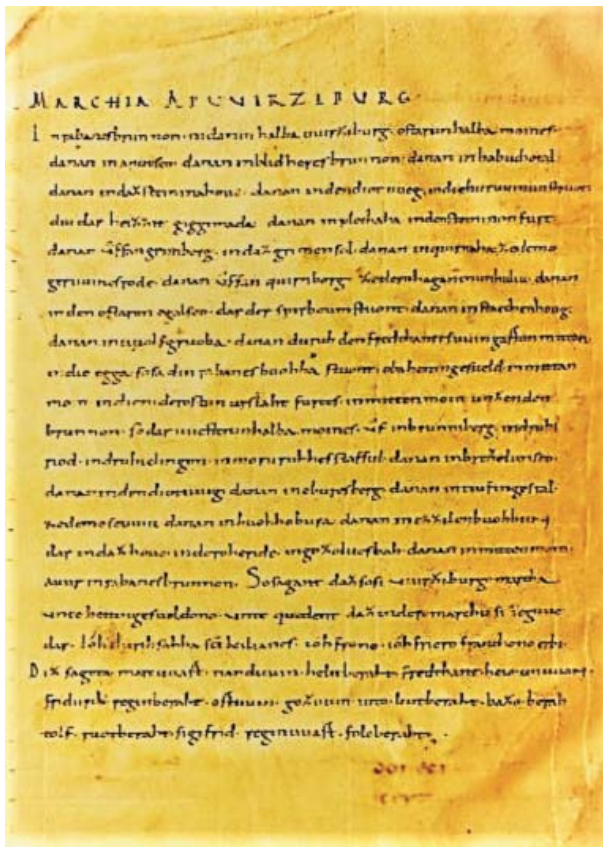 MARCHIA AD UUIRZIBURG
In rabanesbrunnon · nidarun halba uuirziburg · ostarun halba moines ·
danan in anutseo · danan in blidheresbrunnon · danan in habuchotal ·
danan in daz steinina houc · danan in den diotuueg · in die huruuinun struot ·
diu dar heizzit giggimada · danan in pleihaha in den steininon furt ·
danan ûffan grimberg · in daz grimen sol · danan in quirnaha ze demo
geruuines rode · danan ûffan quirnberg ze dero haganinun huliu · danan
in den ostaron egalseo · dar der spirboum stuont · danan in stacchenhoug ·
danan in uuolfgruoba · danan duruh den fredthantes uuingarton mitten
in die egga · sosa diu rabanes buohha stuont · oba heitingesueld · in mittan
moin in die niderostun urslaht furtes · in mitten moin unzen den
brunnon · so dar uuesterun halba moines · ûf in brunniberg · in druhi
riod · in druhiclingon · in moruhhesstafful · danan in brezzelunseo ·
danan in den diotuueg · danan in eburesberg · danan in tiufingestal ·
ze demo seuuiu · danan in huohhobura · danan in ezzilenbuohhun ·
dar in daz houc · in dero heride · in gozoluesbah · danan in mitten moin ·
auur in rabanesbrunnon · So sagant daz so si uuirziburgo marcha
unte heitingesueldono · unte quedent daz in dero marchu si ieguue
dar · ióh chirihsahha sci kilianes · ióh frono · ióh friero franchono erbi ·
Diz sageta marcuuart · nanduuin · helitberaht · fredthant · heio · unuuan ·
fridurih · reginberaht · ortuuin · gozuuin · iuto · liutberaht · bazo · berah
tolf · ruotberaht · sigifrid · reginuuart · folcberaht ·